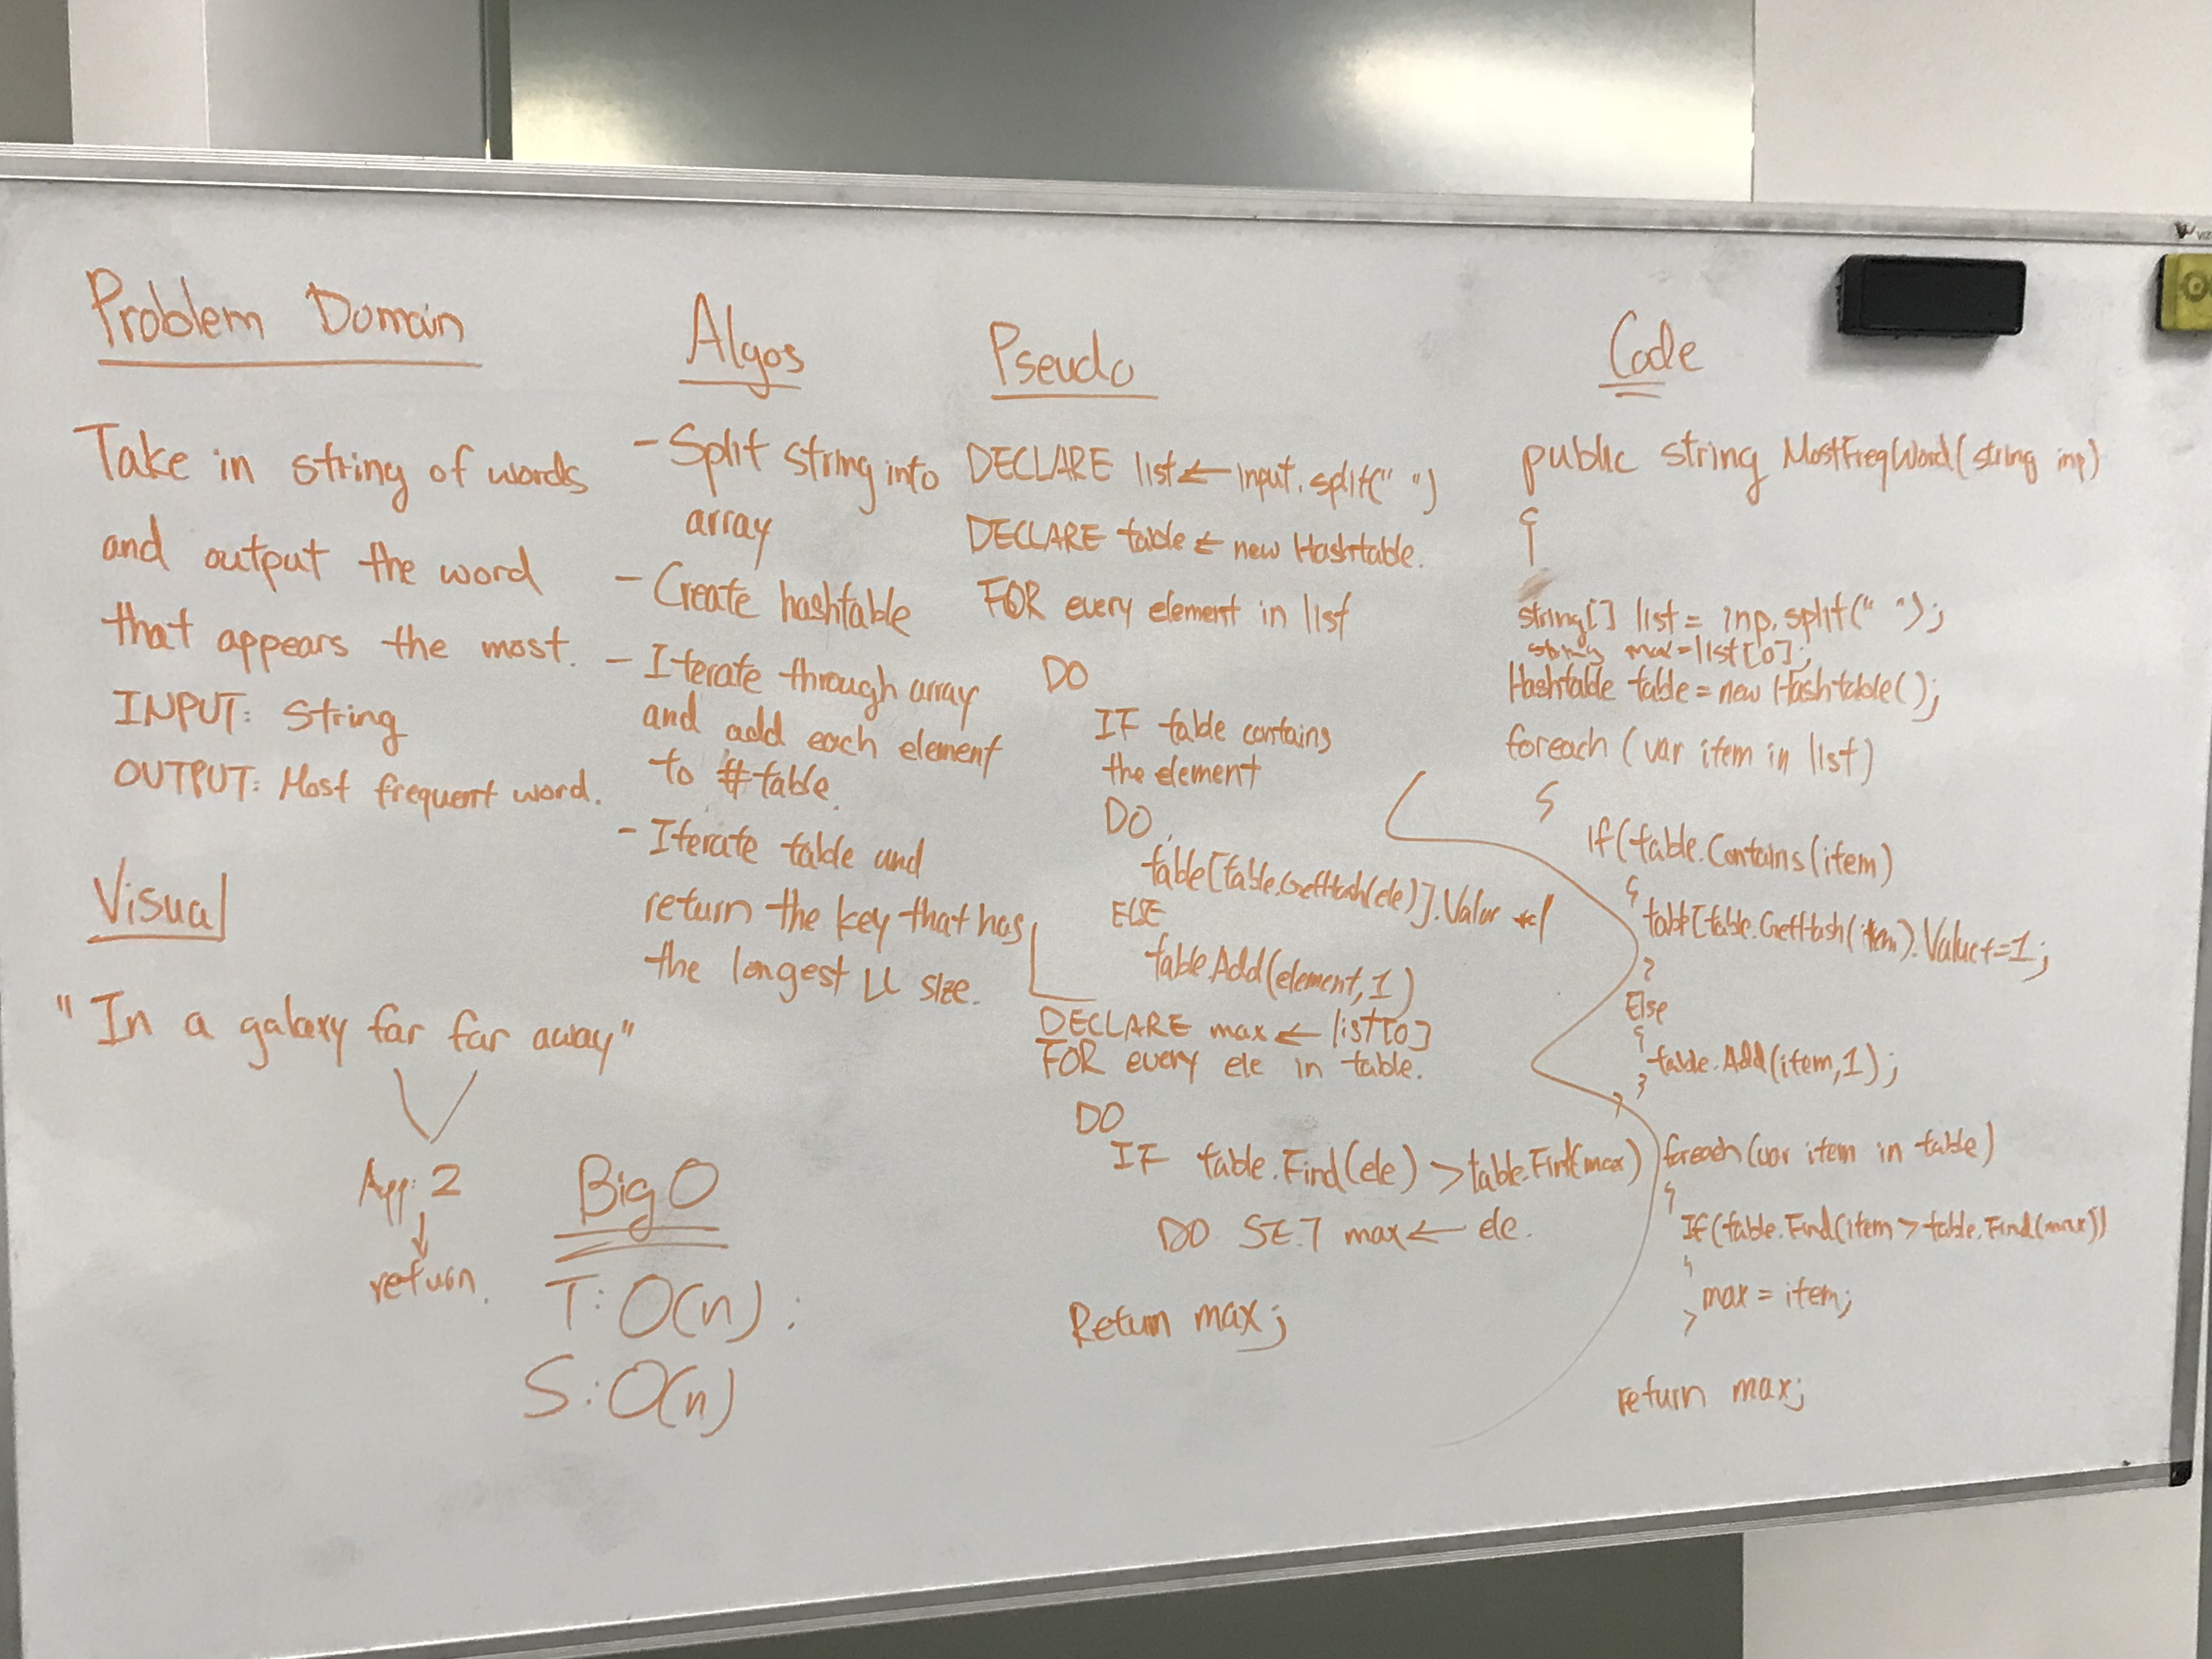 Problem Domain
Take in string of words
and output the word
that appears the most.
INPUT: String
OUTPUT: Most frequent word.
Visual
"In a galaxy far far away"
App: 2
return.
Big O
T: O(n):
S: O(n)
Algos
- Split string into
array
- Create hashtable
- Iterate through array
and add each element
to #table.
- Iterate table and
return the key that has
the longest LL size.
Pseudo
DECLARE list ← input.split(" ")
DECLARE table ← new Hashtable.
FOR every element in list
DO
IF table contains
the element
DO
table[table.GetHash(ele)].Value
ELSE
table.Add(element,1)
DECLARE max ← list[0]
FOR every ele in table.
DO
IF table.Find(ele) > table.Find(max)
DO SET max ← ele.
Return max;
Code
public string MostFreqWord(string inp)
{
string[] list = inp.split(" ");
string max = list[0];
Hashtable table = new Hashtable();
foreach (var item in list)
{
if(table.Contains(item)
{
table[table.GetHash(item).Value+=1;
}
Else
{
table.Add(item,1);
}
}
foreach(var item in table)
{
If(table.Find(item > table.Find(max))
{
max = item;
}
return max;